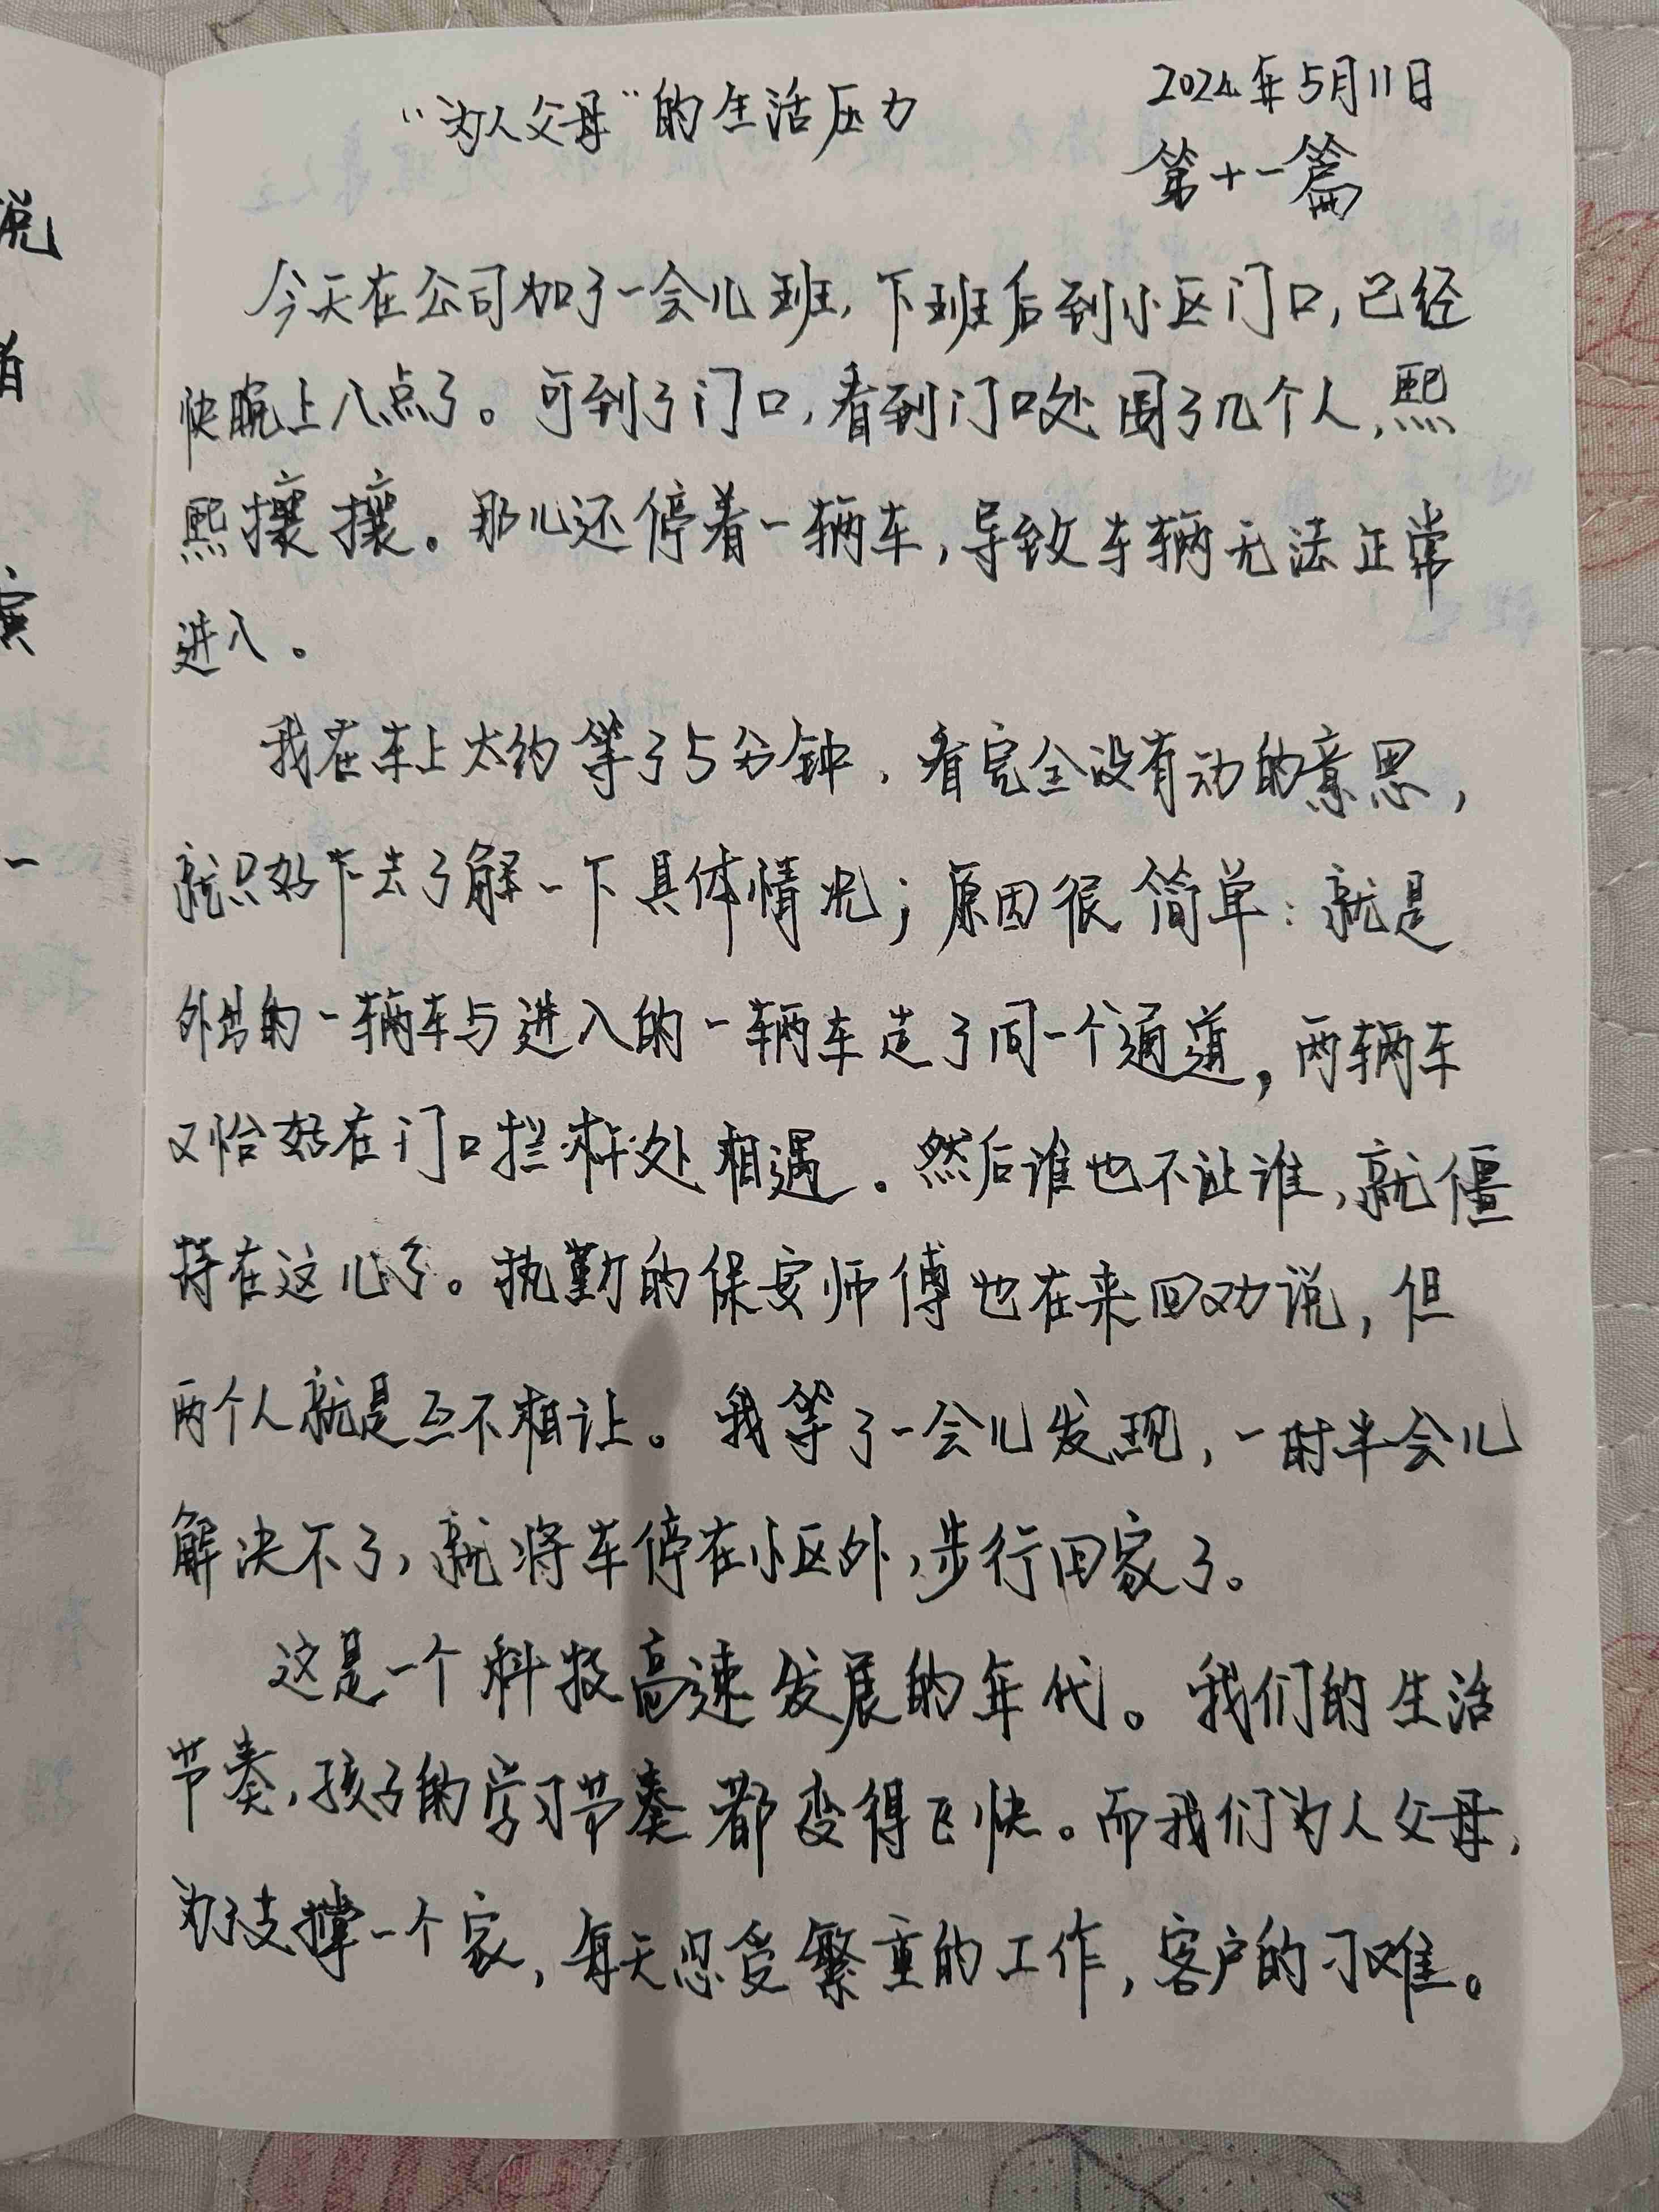 说
首
演
一
"为人父母"的生活压力
2024年5月11日
第十一篇
今天在公司加了一会儿班,下班后到小区门口,已经
快晚上八点了。可到了门口,看到门口处围了几个人,熙
熙攘攘。那儿还停着一辆车,导致车辆无法正常
进入。
我在车上大约等了5分钟,看完全没有动的意思,
就只好下去了解一下具体情况;原因很简单:就是
外出的一辆车与进入的一辆车走了同一个通道,两辆车
又恰好在门口拦杆处相遇。然后谁也不让谁,就僵
持在这儿了。执勤的保安师傅也在来回劝说,但
两个人就是互不相让。我等了一会儿发现,一时半会儿
解决不了,就将车停在小区外,步行回家了。
这是一个科技高速发展的年代。我们的生活
节奏,孩子的学习节奏都变得飞快。而我们为人父母,
为了支撑一个家,每天忍受繁重的工作,客户的刁难。